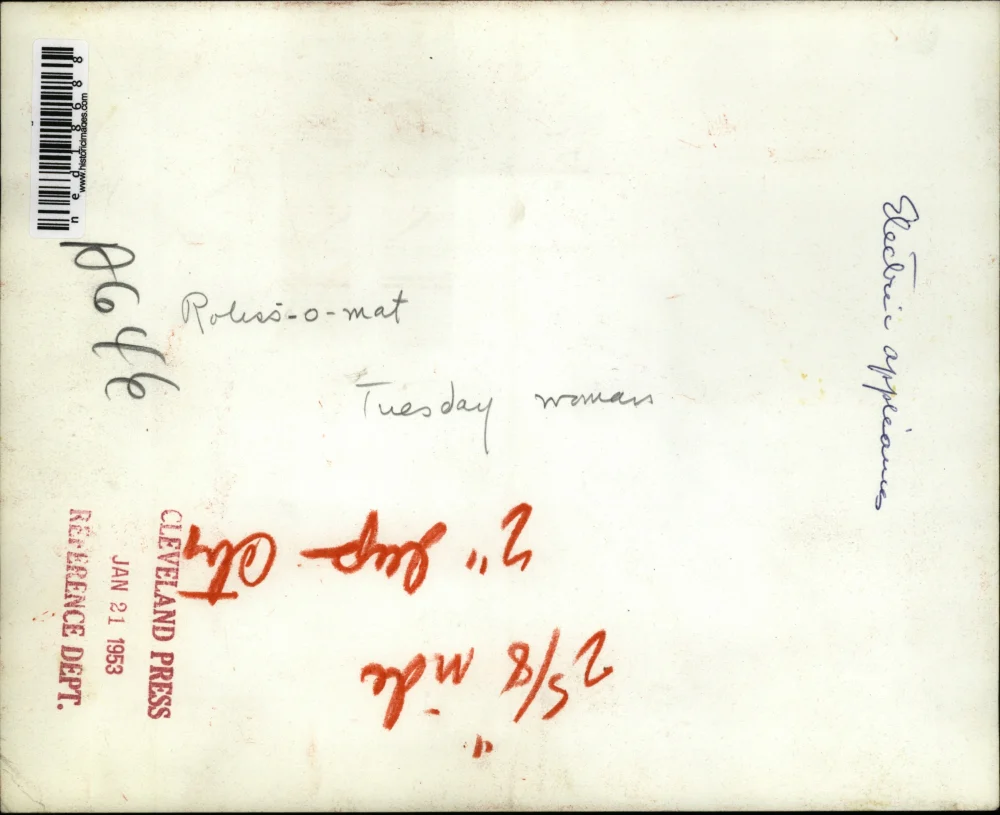 ned18688
www.historicimages.com
Electric appliances
Roless-o-mat
Tuesday woman
CLEVELAND PRESS
JAN 21 1953
REFERENCE DEPT.
2" deep
2 5/8" wide